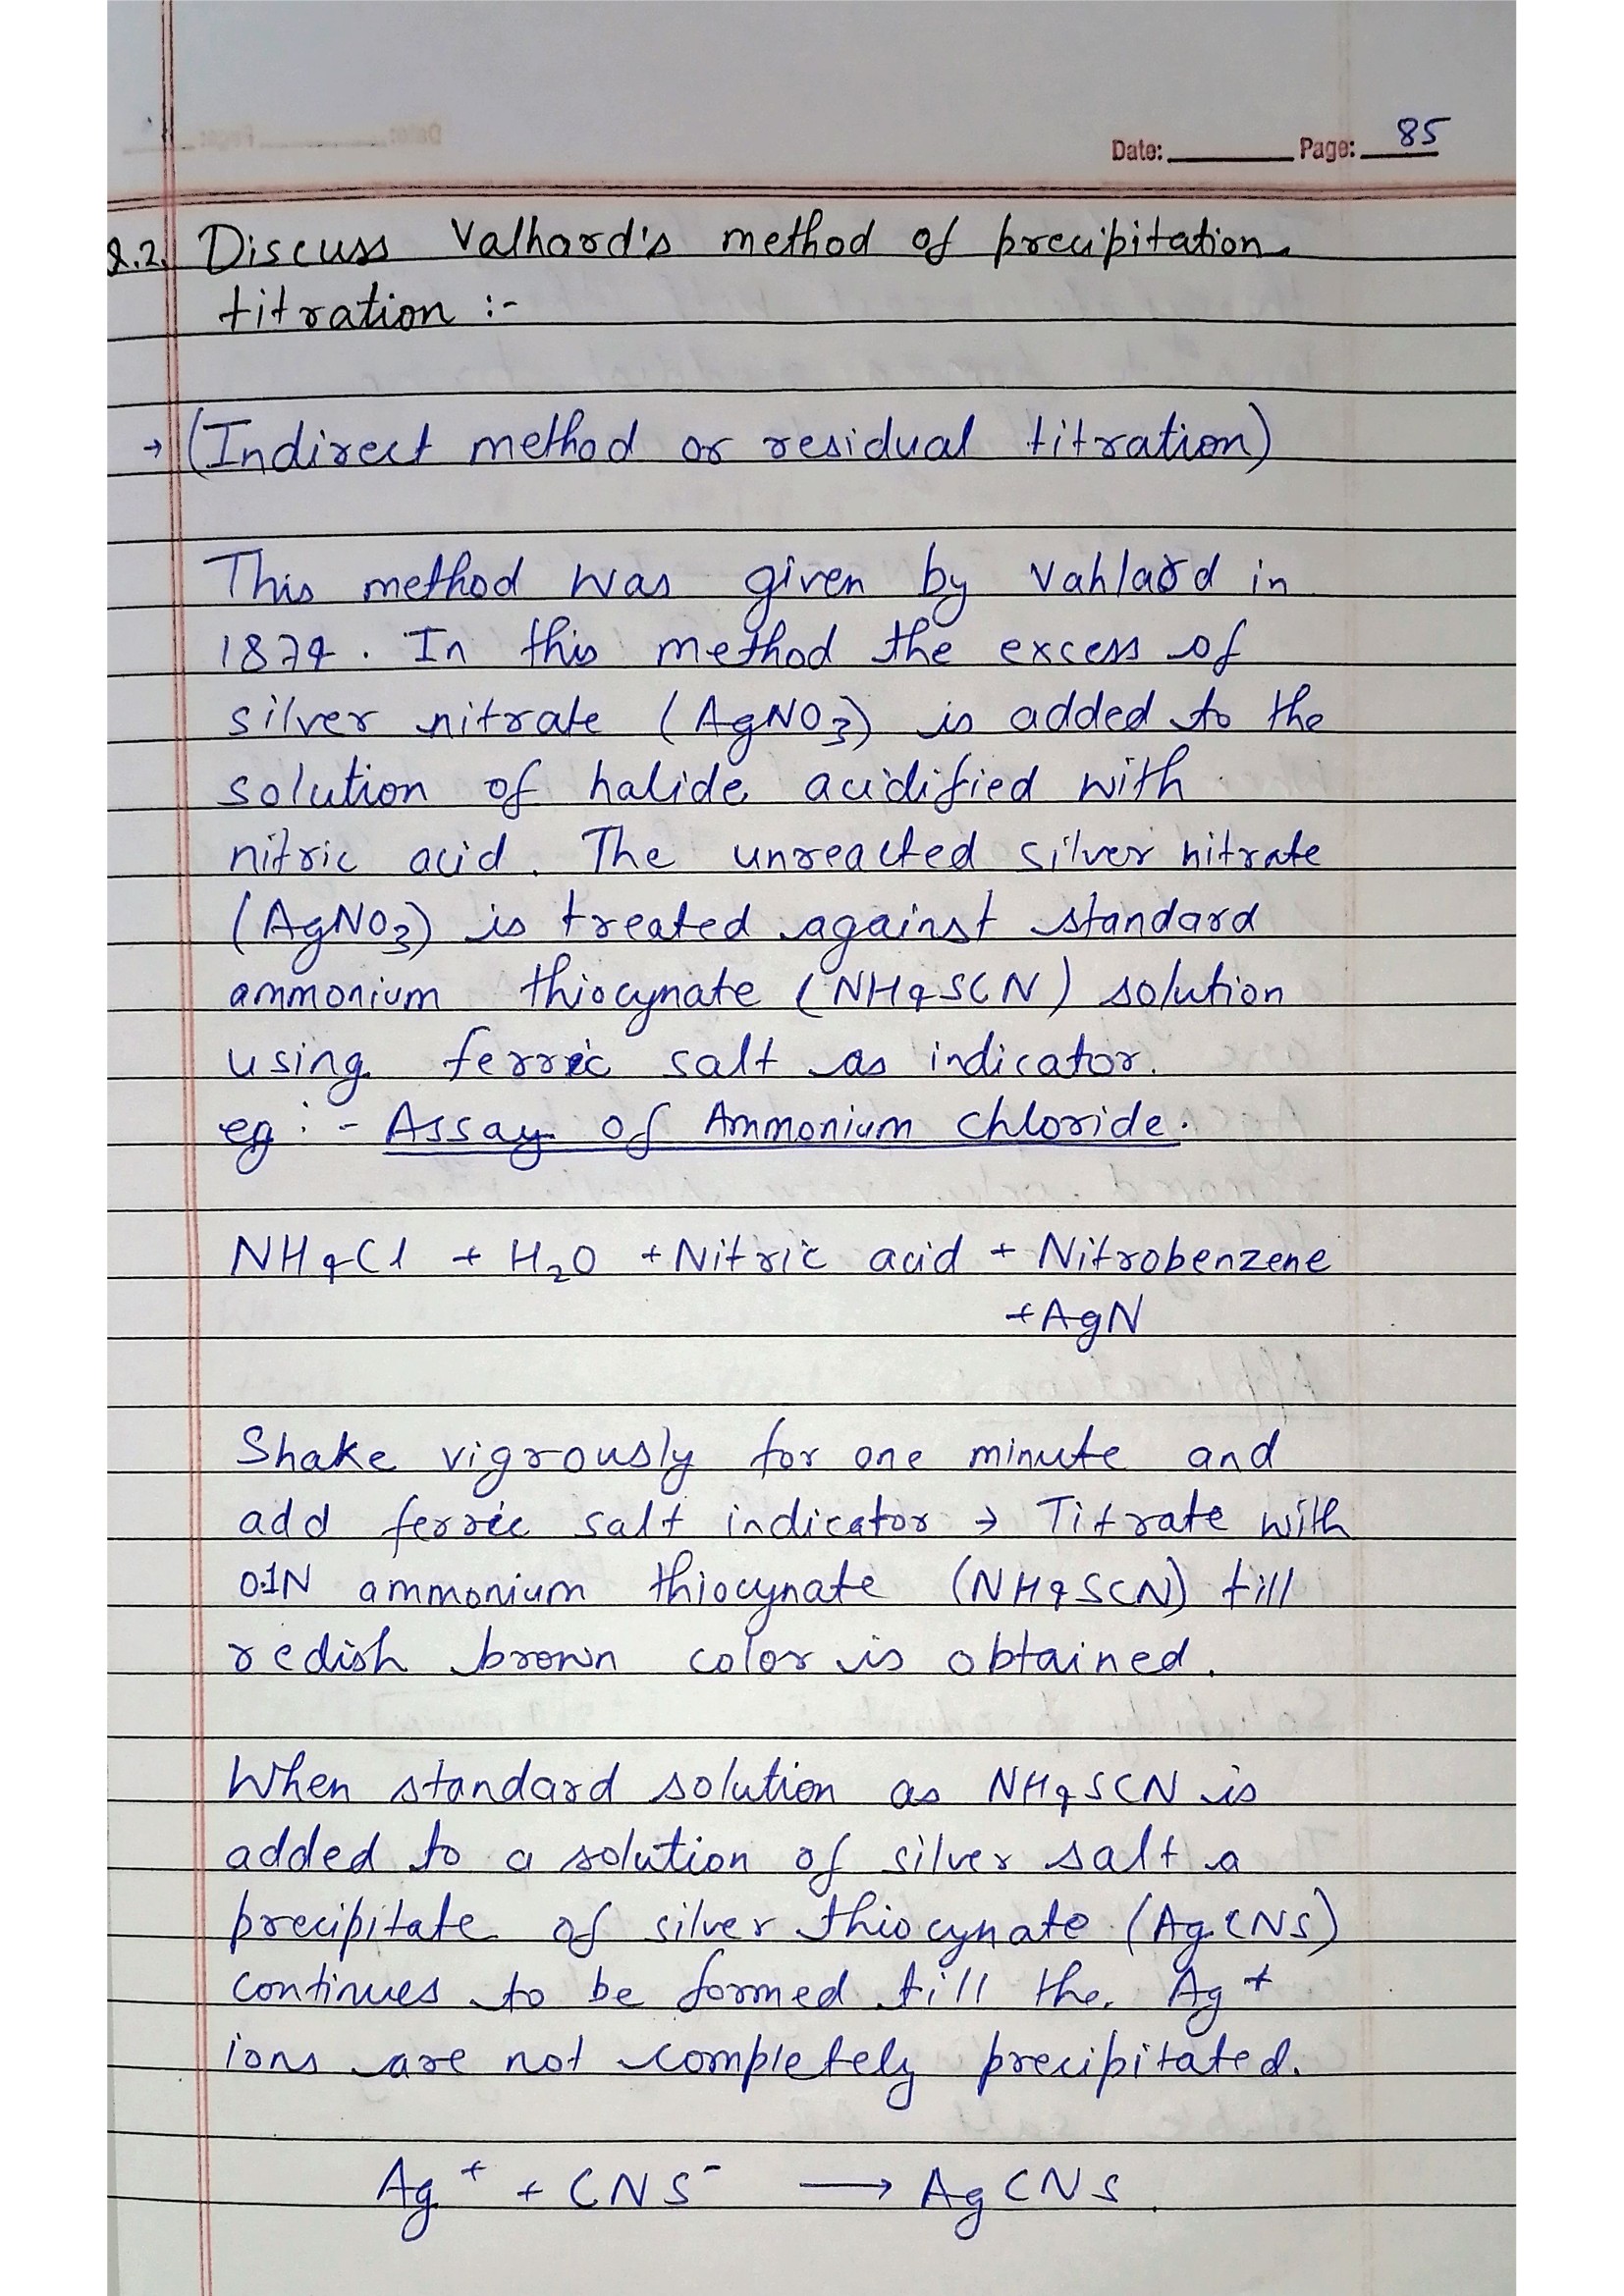 Date: Page: 85
Q.2. Discuss Valhard's method of precipitation
titration :-
→ (Indirect method or residual titration)
This method was given by Vahlard in
1874. In this method the excess of
silver nitrate (AgNO3) is added to the
solution of halide acidified with
nitric acid. The unreacted silver nitrate
(AgNO3) is treated against standard
ammonium thiocynate (NH4SCN) solution
using ferric salt as indicator.
eg :- Assay of Ammonium chloride.
NH4Cl + H2O + Nitric acid + Nitrobenzene
+ AgN
Shake vigrously for one minute and
add ferric salt indicator → Titrate with
0.1N ammonium thiocynate (NH4SCN) till
redish brown color is obtained.
When standard solution as NH4SCN is
added to a solution of silver salt a
precipitate of silver thiocynate (AgCNS)
continues to be formed till the Ag+
ions are not completely precipitated.
Ag+ + CNS- → AgCNS.